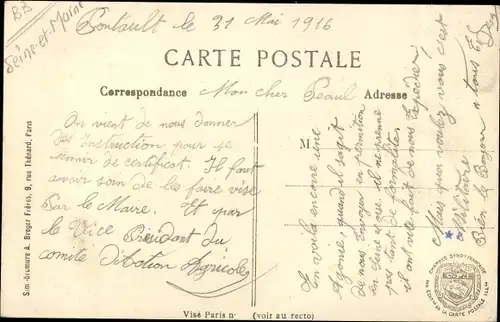 BB
Seine-et-Marne
Pontault le 31 Mai 1916
CARTE POSTALE
Correspondance
Mon cher Peaul
Adresse
On vient de nous donner
des Instruction pour
de certificat. Il faut
avoir soin de les faire visé
Par le Maire. Et par
le Vice Président du
comité d'Action Agricole
M
En voila encore une
Agonie quand il sagit
de nous Envoyer en permition
En Seine et Oise. il ne prenne
pas tant de formalités
il ont vite fait de nous Expédier
Mais que voulez vous c'est
Militaire
Bien le Bonjour a tous
S.m.-Dcumurs A. Breger Frères, 9, rue Thénard, Paris
Visé Paris n° (voir au recto)
CHAMBRE SYNDle FRANÇAISE
DES EDITrs DE LA CARTE POSTALE ILLée